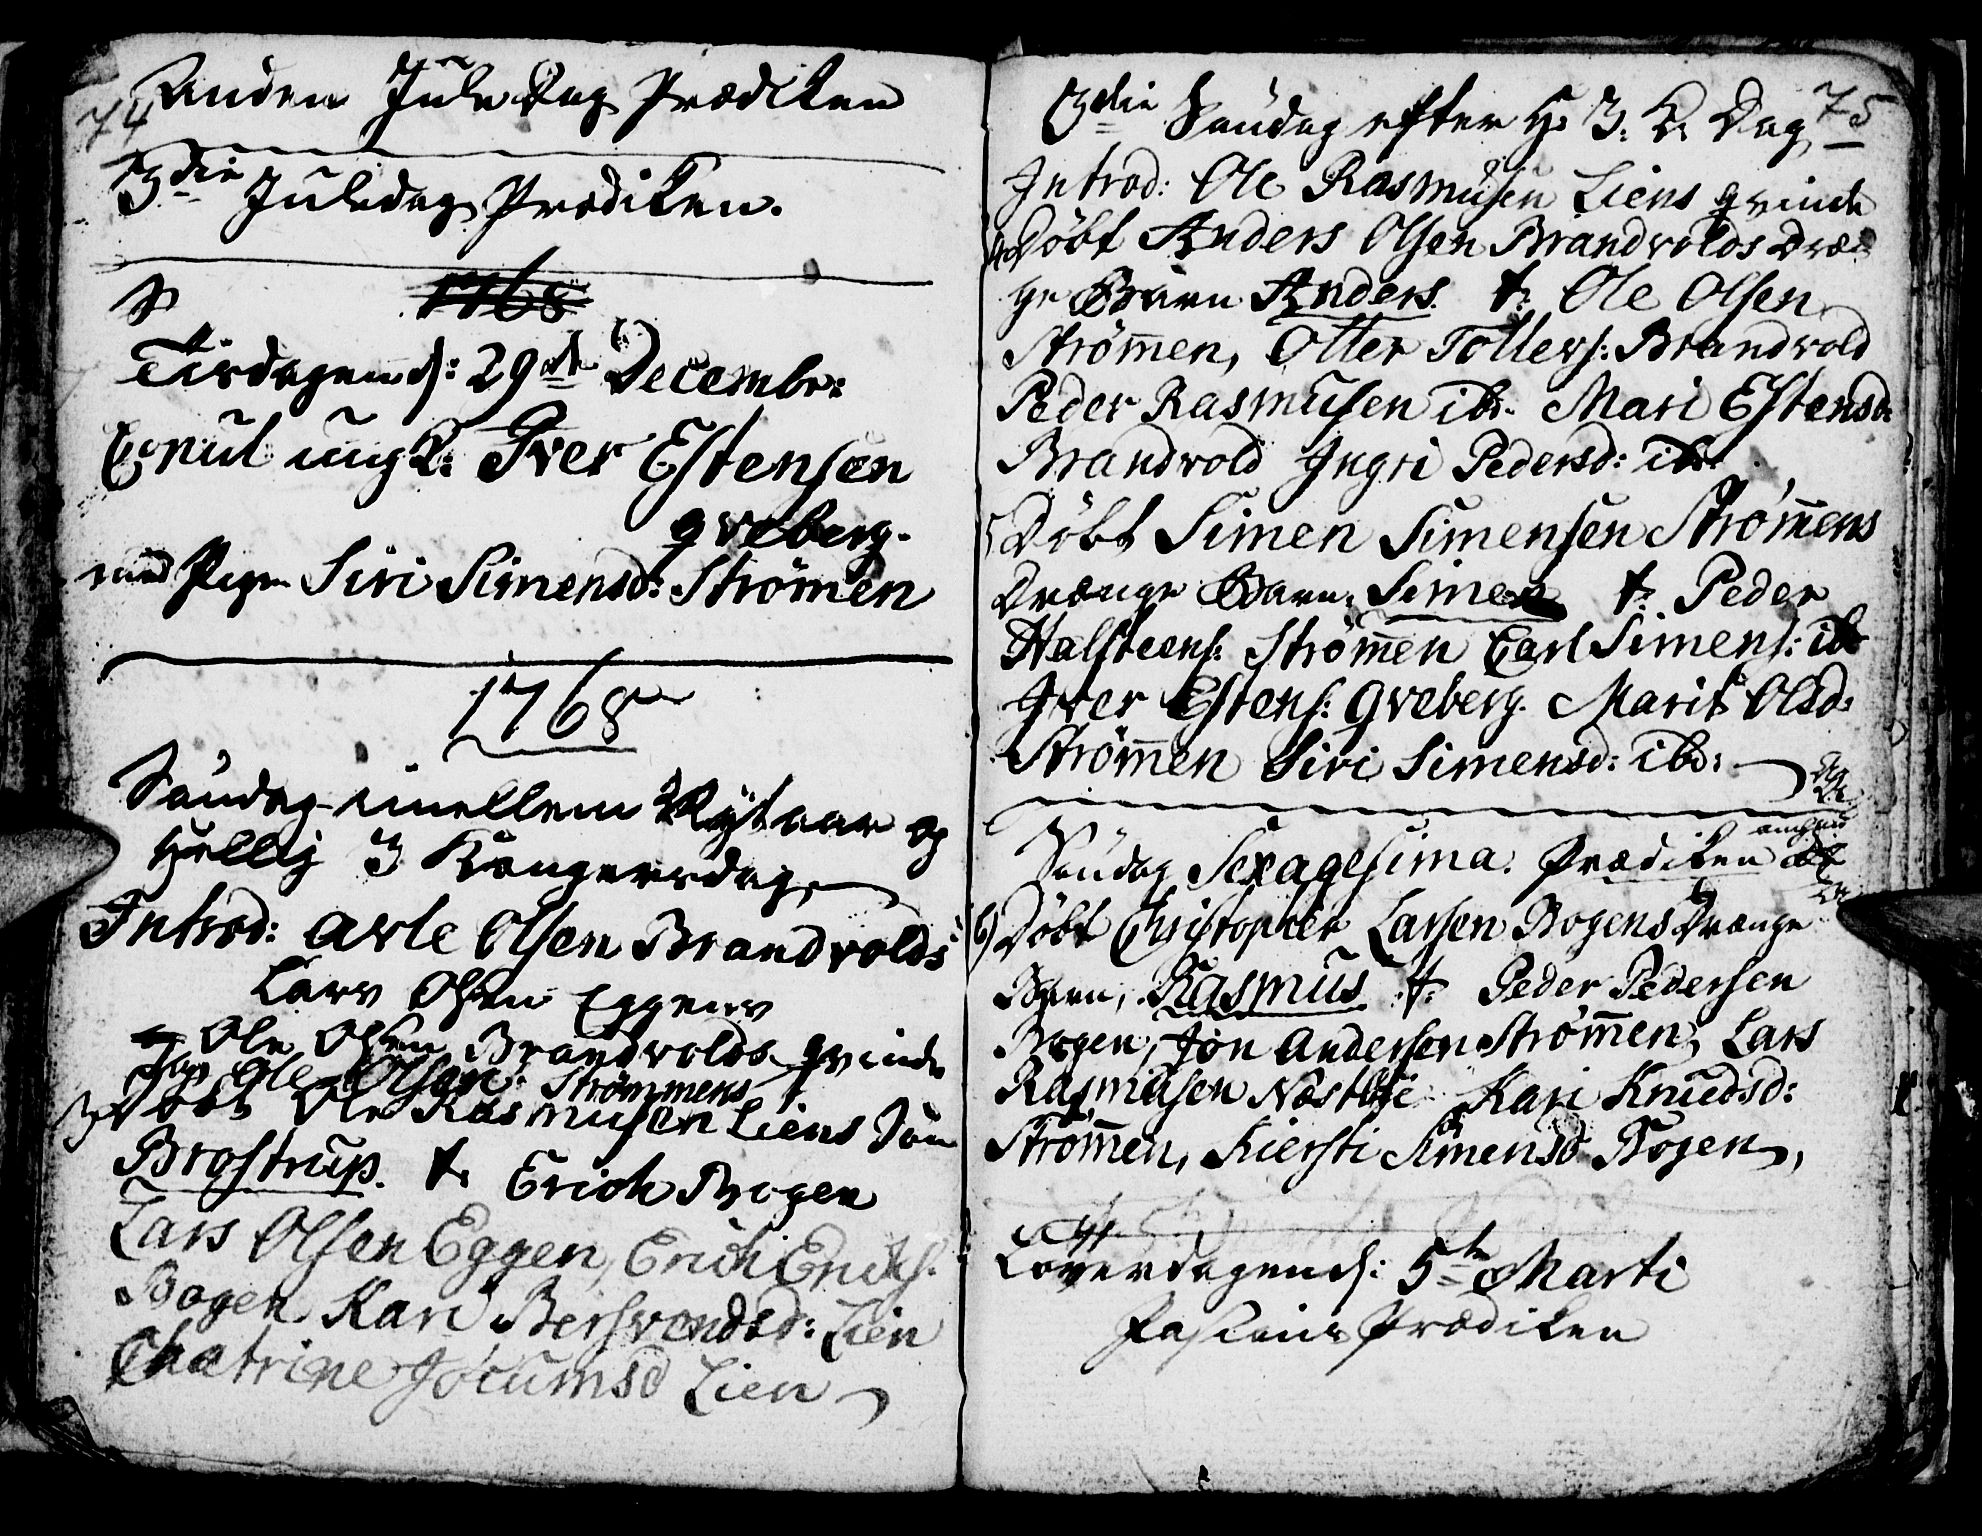 74
Anden Jule Dag Prædiken
3die Juledag Prædiken.
1768
Tirsdagen d: 29de Decembr:
Copul ung K: Iver Estensen
Qveberg.
med Pigen Siri Simensd: Strömen
1768
Søndag imellem Nytaar og
Hellig 3 Kongersdag,
Introd: Arle Olsen Brandvolds
Lars Olsen Eggens
og Ole Olsen Brandvolds qvinde
Jtem Ole Olsen Strömmens
3 Döbt Ole Rasmusen Liens Søn
Brostrup. F: Erich Bogen
Lars Olsen Eggen, Erich Erichs:
Bogen Kari Bersvendsd: Lien
Chatrine Jocumsd Lien
75
3die Søndag efter H: 3: K: Dag
Introd: Ole Rasmusen Liens qvinde
4 Döbt Anders Olsen Brandvolds Dræn
ge Barn Anders. F: Ole Olsen
Strömen, Otter Tollevs: Brandvold
Peder Rasmusen ibd. Mari Estensd:
Brandvold Ingri Pedersd: ibd
5 Döbt Simen Simensen Strömens
Drænge Barn, Simen F: Peder
Halsteens: Strömen Carl Simens: ib
Iver Estens: Qveberg. Marit Olsd:
Strömen Siri Simensd: ibd:
Søndag Sexagesima. Prædiken
6) Döbt Christopher Larsen Bogens Drænge
Barn, Rasmus F: Peder Pedersen
Bogen, Jon Andersen Strömen, Lars
Rasmusen Næstbye Kari Knudsd:
Strömen, Kiersti Simensd Bogen,
Løverdagen d: 5te Marti
Fastens Prædiken